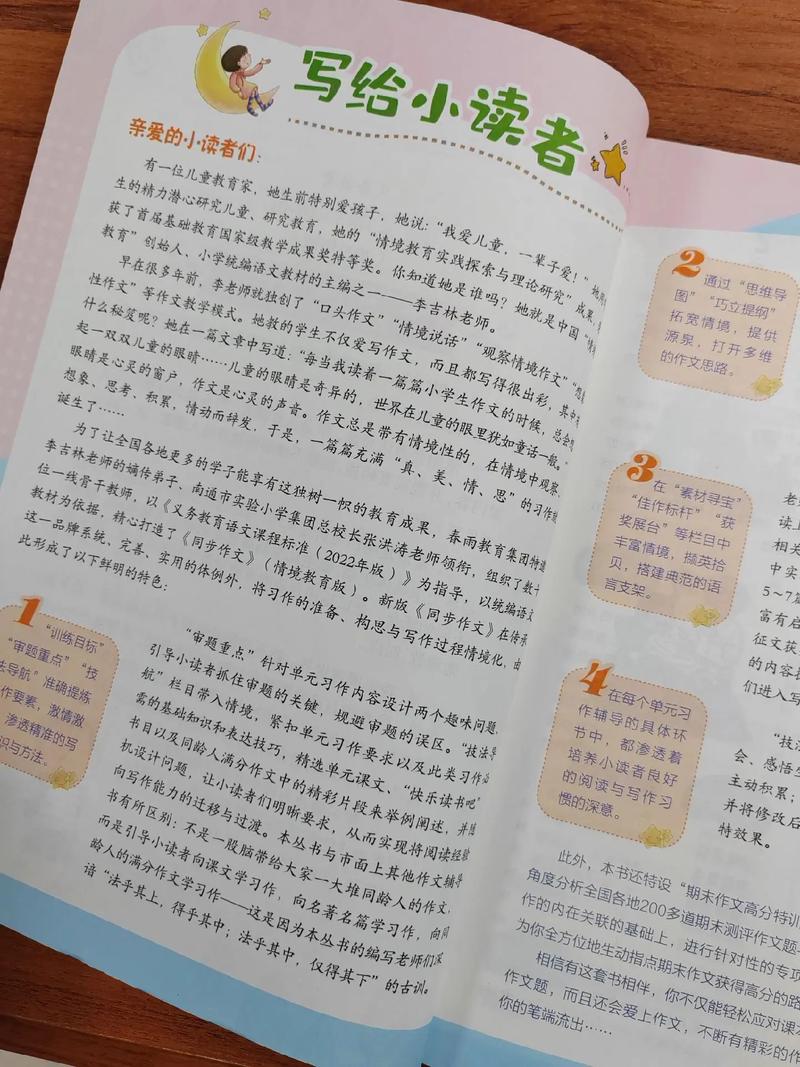 写给小读者
亲爱的小读者们：
有一位儿童教育家，她生前特别爱孩子，她说：“我爱儿童，一辈子爱！”她用
生的精力潜心研究儿童、研究教育，她的“情境教育实践探索与理论研究”成果，
获了首届基础教育国家级教学成果奖特等奖。你知道她是谁吗？她就是中国“情
教育”创始人、小学统编语文教材的主编之一——李吉林老师。
早在很多年前，李老师就独创了“口头作文”“情境说话”“观察情境作文”“想
性作文”等作文教学模式。她教的学生不仅爱写作文，而且都写得很出彩，其中
什么秘笈呢？她在一篇文章中写道：“每当我读着一篇篇小学生作文的时候，总会
起一双双儿童的眼睛……儿童的眼睛是奇异的，世界在儿童的眼里犹如童话一般。”
眼睛是心灵的窗户，作文是心灵的声音。作文总是带有情境性的，在情境中观察、
想象、思考、积累，情动而辞发，于是，一篇篇充满“真、美、情、思”的习作
诞生了……
为了让全国各地更多的学子能享有这独树一帜的教育成果，春雨教育集团特
李吉林老师的嫡传弟子、南通市实验小学集团总校长张洪涛老师领衔，组织了数十
位一线骨干教师，以《义务教育语文课程标准（2022年版）》为指导，以统编语文
教材为依据，精心打造了《同步作文》（情境教育版）。新版《同步作文》在传承
这一品牌系统、完善、实用的体例外，将习作的准备、构思与写作过程情境化，由
此形成了以下鲜明的特色：
1
“训练目标”
“审题重点”“技
法导航”准确提炼
作要素，激情激
渗透精准的写
识与方法。
“审题重点”针对单元习作内容设计两个趣味问题，
引导小读者抓住审题的关键，规避审题的误区。“技法导
航”栏目带入情境，紧扣单元习作要求以及此类习作必
需的基础知识和表达技巧，精选单元课文、“快乐读书吧”
书目以及同龄人满分作文中的精彩片段来举例阐述，并随
机设计问题，让小读者们明晰要求，从而实现将阅读经验
向写作能力的迁移与过渡。本丛书与市面上其他作文辅导
书有所区别：不是一股脑带给大家一大堆同龄人的作文，
而是引导小读者向课文学习作，向名著名篇学习作，向同
龄人的满分作文学习作——这是因为本丛书的编写老师们深
谙“法乎其上，得乎其中；法乎其中，仅得其下”的古训。
2
通过“思维导
图”“巧立提纲”
拓宽情境，提供
源泉，打开多维
的作文思路。
3
在“素材寻宝”
“佳作标杆”“获
奖展台”等栏目中
丰富情境，撷英拾
贝，搭建典范的语
言支架。
4
在每个单元习
作辅导的具体环
节中，都渗透着
培养小读者良好
的阅读与写作习
惯的深意。
老
读上
相关
中实
5~7篇
富有启
征文获
的内容
们进入写
“技
会、感悟生
主动积累；
并将修改后
特效果。
此外，本书还特设“期末作文高分特训
角度分析全国各地200多道期末测评作文题
作的内在关联的基础上，进行针对性的专项
为你全方位地生动指点期末作文获得高分的路
相信有这套书相伴，你不仅能轻松应对课
作文题，而且还会爱上作文，不断有精彩的作
你的笔端流出……